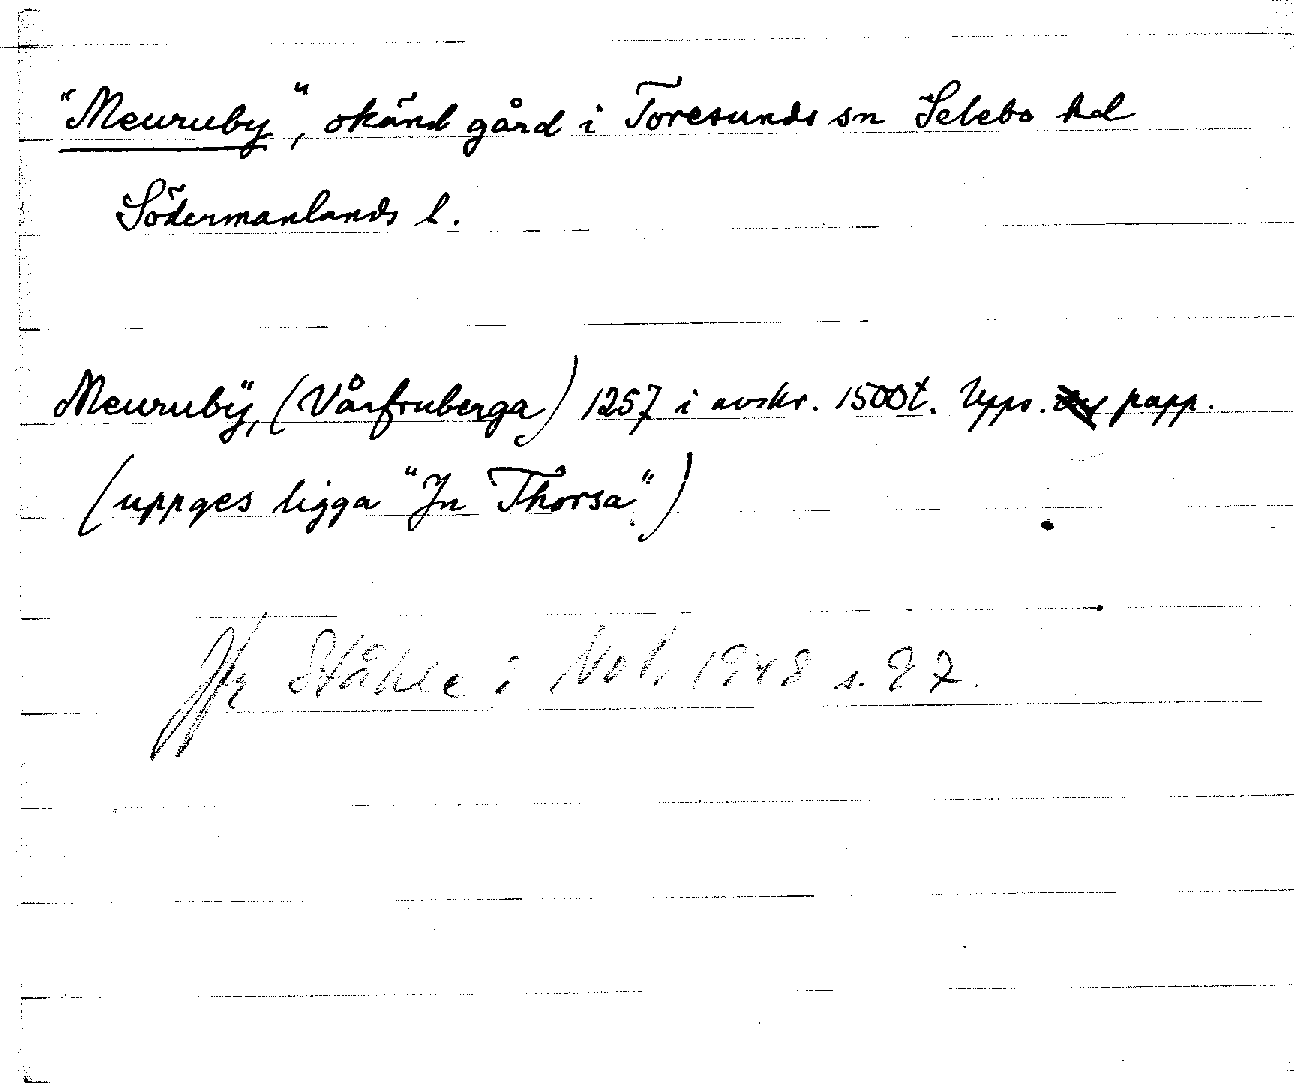 "Meuruby", okänd gård i Toresunds sn Selebo hd
Södermanlands l.
Meurubÿ, (Vårfruberga) 1257 i avskr. 1500t. Upps. papp.
(uppges ligga "Jn Thorsa")
Jfr Ståhle i NoB. 1948 s. 97.